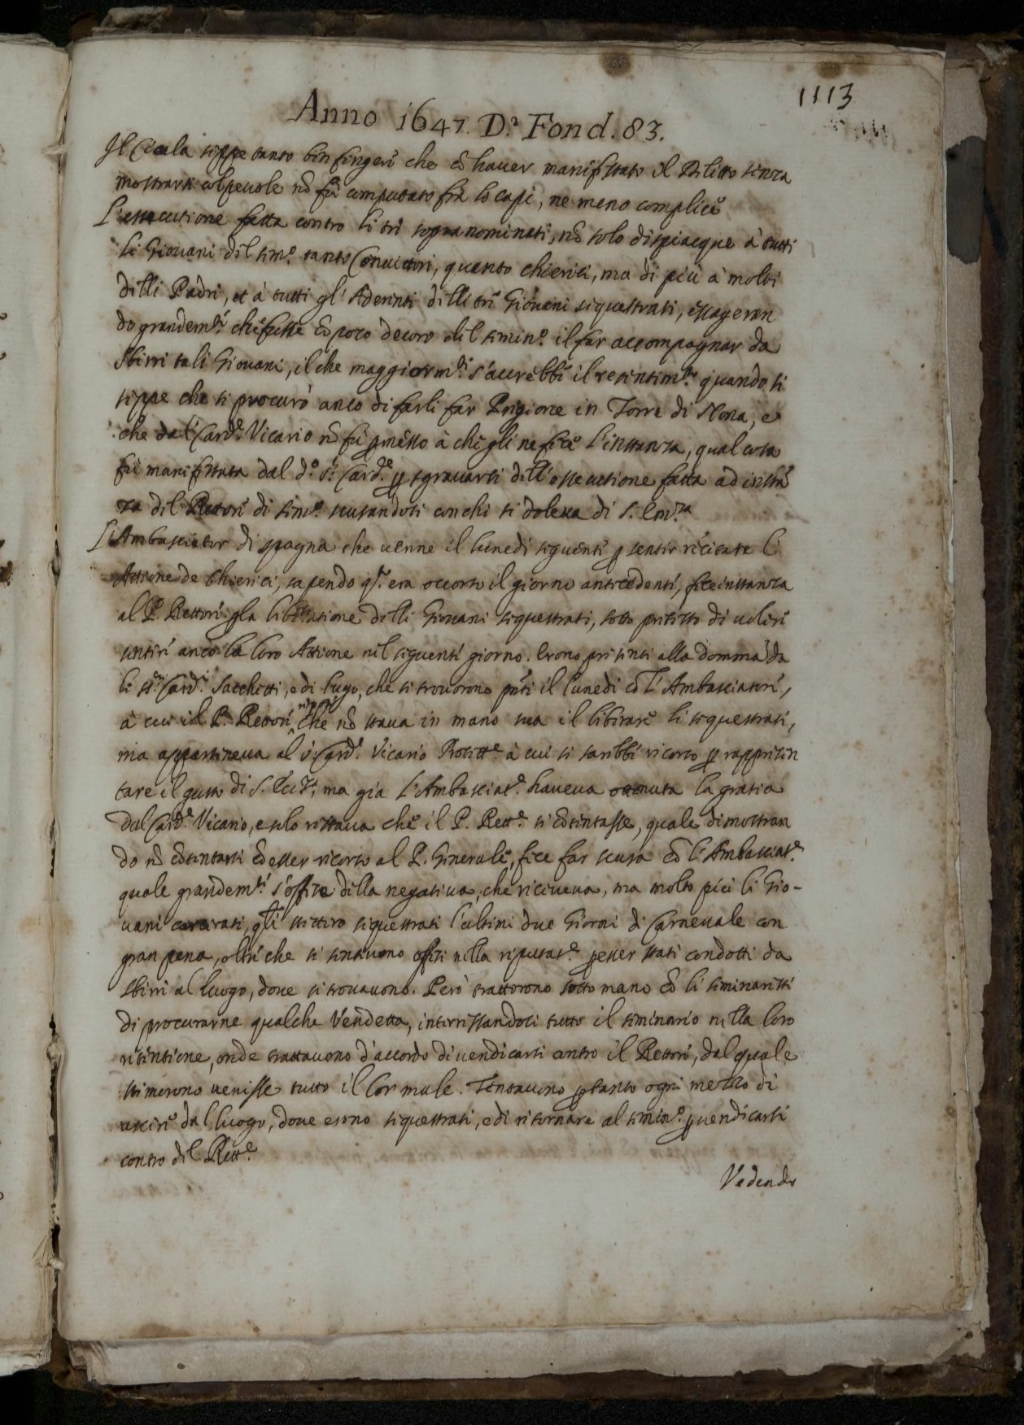 1113
Anno 1647. D.ª Fond. 83.
Il Cicala seppe tanto ben fingere che cõ haver manifestato il Delitto senza
mostrarsi colpevole nõ fù computato frà lo capi, ne meno complice
L'essecutione fatta contro li tre sopranominati, nõ solo dispiacque à tutti
li Giovani del Sem.º tanto Convittori, quanto chierici, ma di più à molti
delli Padri, et à tutti gl'Aderenti delli tre Giovani sequestrati, essageran
do grandem.te che fusse cõ poco decoro del semin.º il far accompagnar da
sbirri tali Giovani, il che maggiorm.te s'accrebbe il resentim.to quando si
seppe che si procurò anco di farli far Prigione in Torre di Nona, e
che dal Card.l Vicario nõ fù pmesso à chi gli ne fece l'instanza, qual cosa
fù manifestata dal d.º S.r Card.le p sgravarsi dell'essecutione fatta ad instã
za del Rettore di Sem.º scusandosi con chi si doleva di S. Em.za
L'Ambasciator di spagna che venne il lunedi seguente p sentir recitare l'
Attione de Chierici, sapendo q.to era occorso il giorno antecedente, fece instanza
al P. Rettore p la liberatione delli Giovani sequestrati, sotto pretesto di volere
sentire anco la loro Attione nel seguente giorno. Erono presenti alla dommãda
li SS.ri Card.li Sacchetti, e di Lugo, che si trovorono pñti il lunedi cõ l'Ambasciatore,
à cui il P. Rettore rispose che nõ stava in mano sua il liberare li sequestrati,
ma apparteneva al S.r Card.l Vicario Protett.e à cui si sarebbe ricorso p rappresen
tare il gusto di S. Ecc.za, ma già l'Ambasciat.e haveva ottenuta la gratia
dal Card.l Vicario, e solo restava che il P. Rett.e si cõtentasse, quale dimostran
do nõ cõtentarsi cõ esser ricorso al P. Generale, fece far scusa cõ l'Ambasciat.e
quale grandem.te s'offese della negativa, che riceveva, ma molto più li Gio-
vani carcerati, q.li stettero sequestrati l'ultimi due Giorni di Carnevale con
gran pena, oltre che si sentivono offesi nella riputat.e p esser stati condotti da
sbirri al luogo, dove si trovavono. Però trattorono sotto mano cõ li seminaristi
di procurarne qualche Vendetta, interessandoci tutto il seminario nella loro
retentione, onde trattavono d'accordo di vendicarsi contro il Rettore, dal quale
stimorono venisse tutto il lor male. Tentavono p tanto ogni mezzo di
uscire dal luogo, dove erono sequestrati, e di ritornare al semin.º p vendicarsi
contro del Rett.e
Vedendo